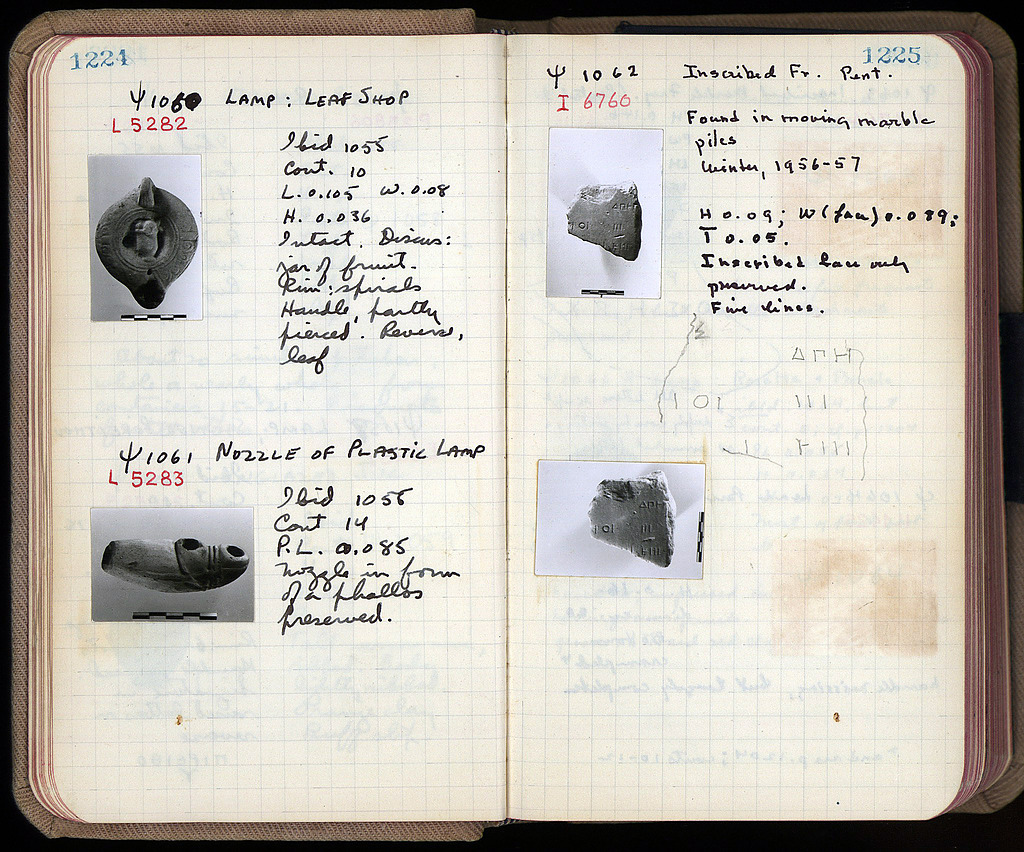 1224
Ψ 1060 LAMP: LEAF SHOP
L 5282
Ibid 1055
Cont. 10
L. 0.105 W. 0.08
H. 0.036
Intact. Discus:
jar of fruit.
Rim: spirals
Handle, partly
pierced. Reverse,
leaf
Ψ 1061 NOZZLE OF PLASTIC LAMP
L 5283
Ibid 1055
Cont 14
P.L. 0.085
Nozzle in form
of a phallos
preserved.
1225
Ψ 1062 Inscribed Fr. Pent.
I 6760
Found in moving marble
piles
Winter, 1956-57
H 0.09; W (face) 0.089;
T 0.05.
Inscribed face only
preserved.
Five lines.
ΔΠΗ
Ι ΟΙ ΙΙΙ
ͰΙΙΙ